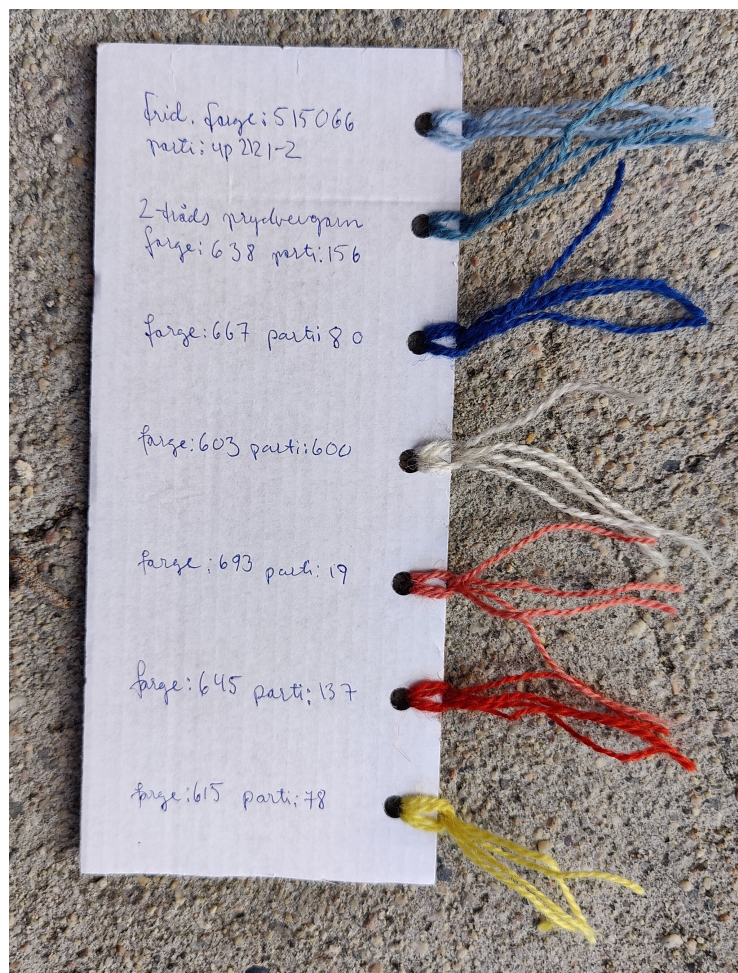 frid. farge: 515066
parti: 4p 2121-2
2-tråds prydvevgarn
farge: 638 parti: 156
farge: 667 parti 80
farge: 603 parti: 600
farge: 693 parti: 19
farge: 645 parti: 137
farge: 615 parti: 78